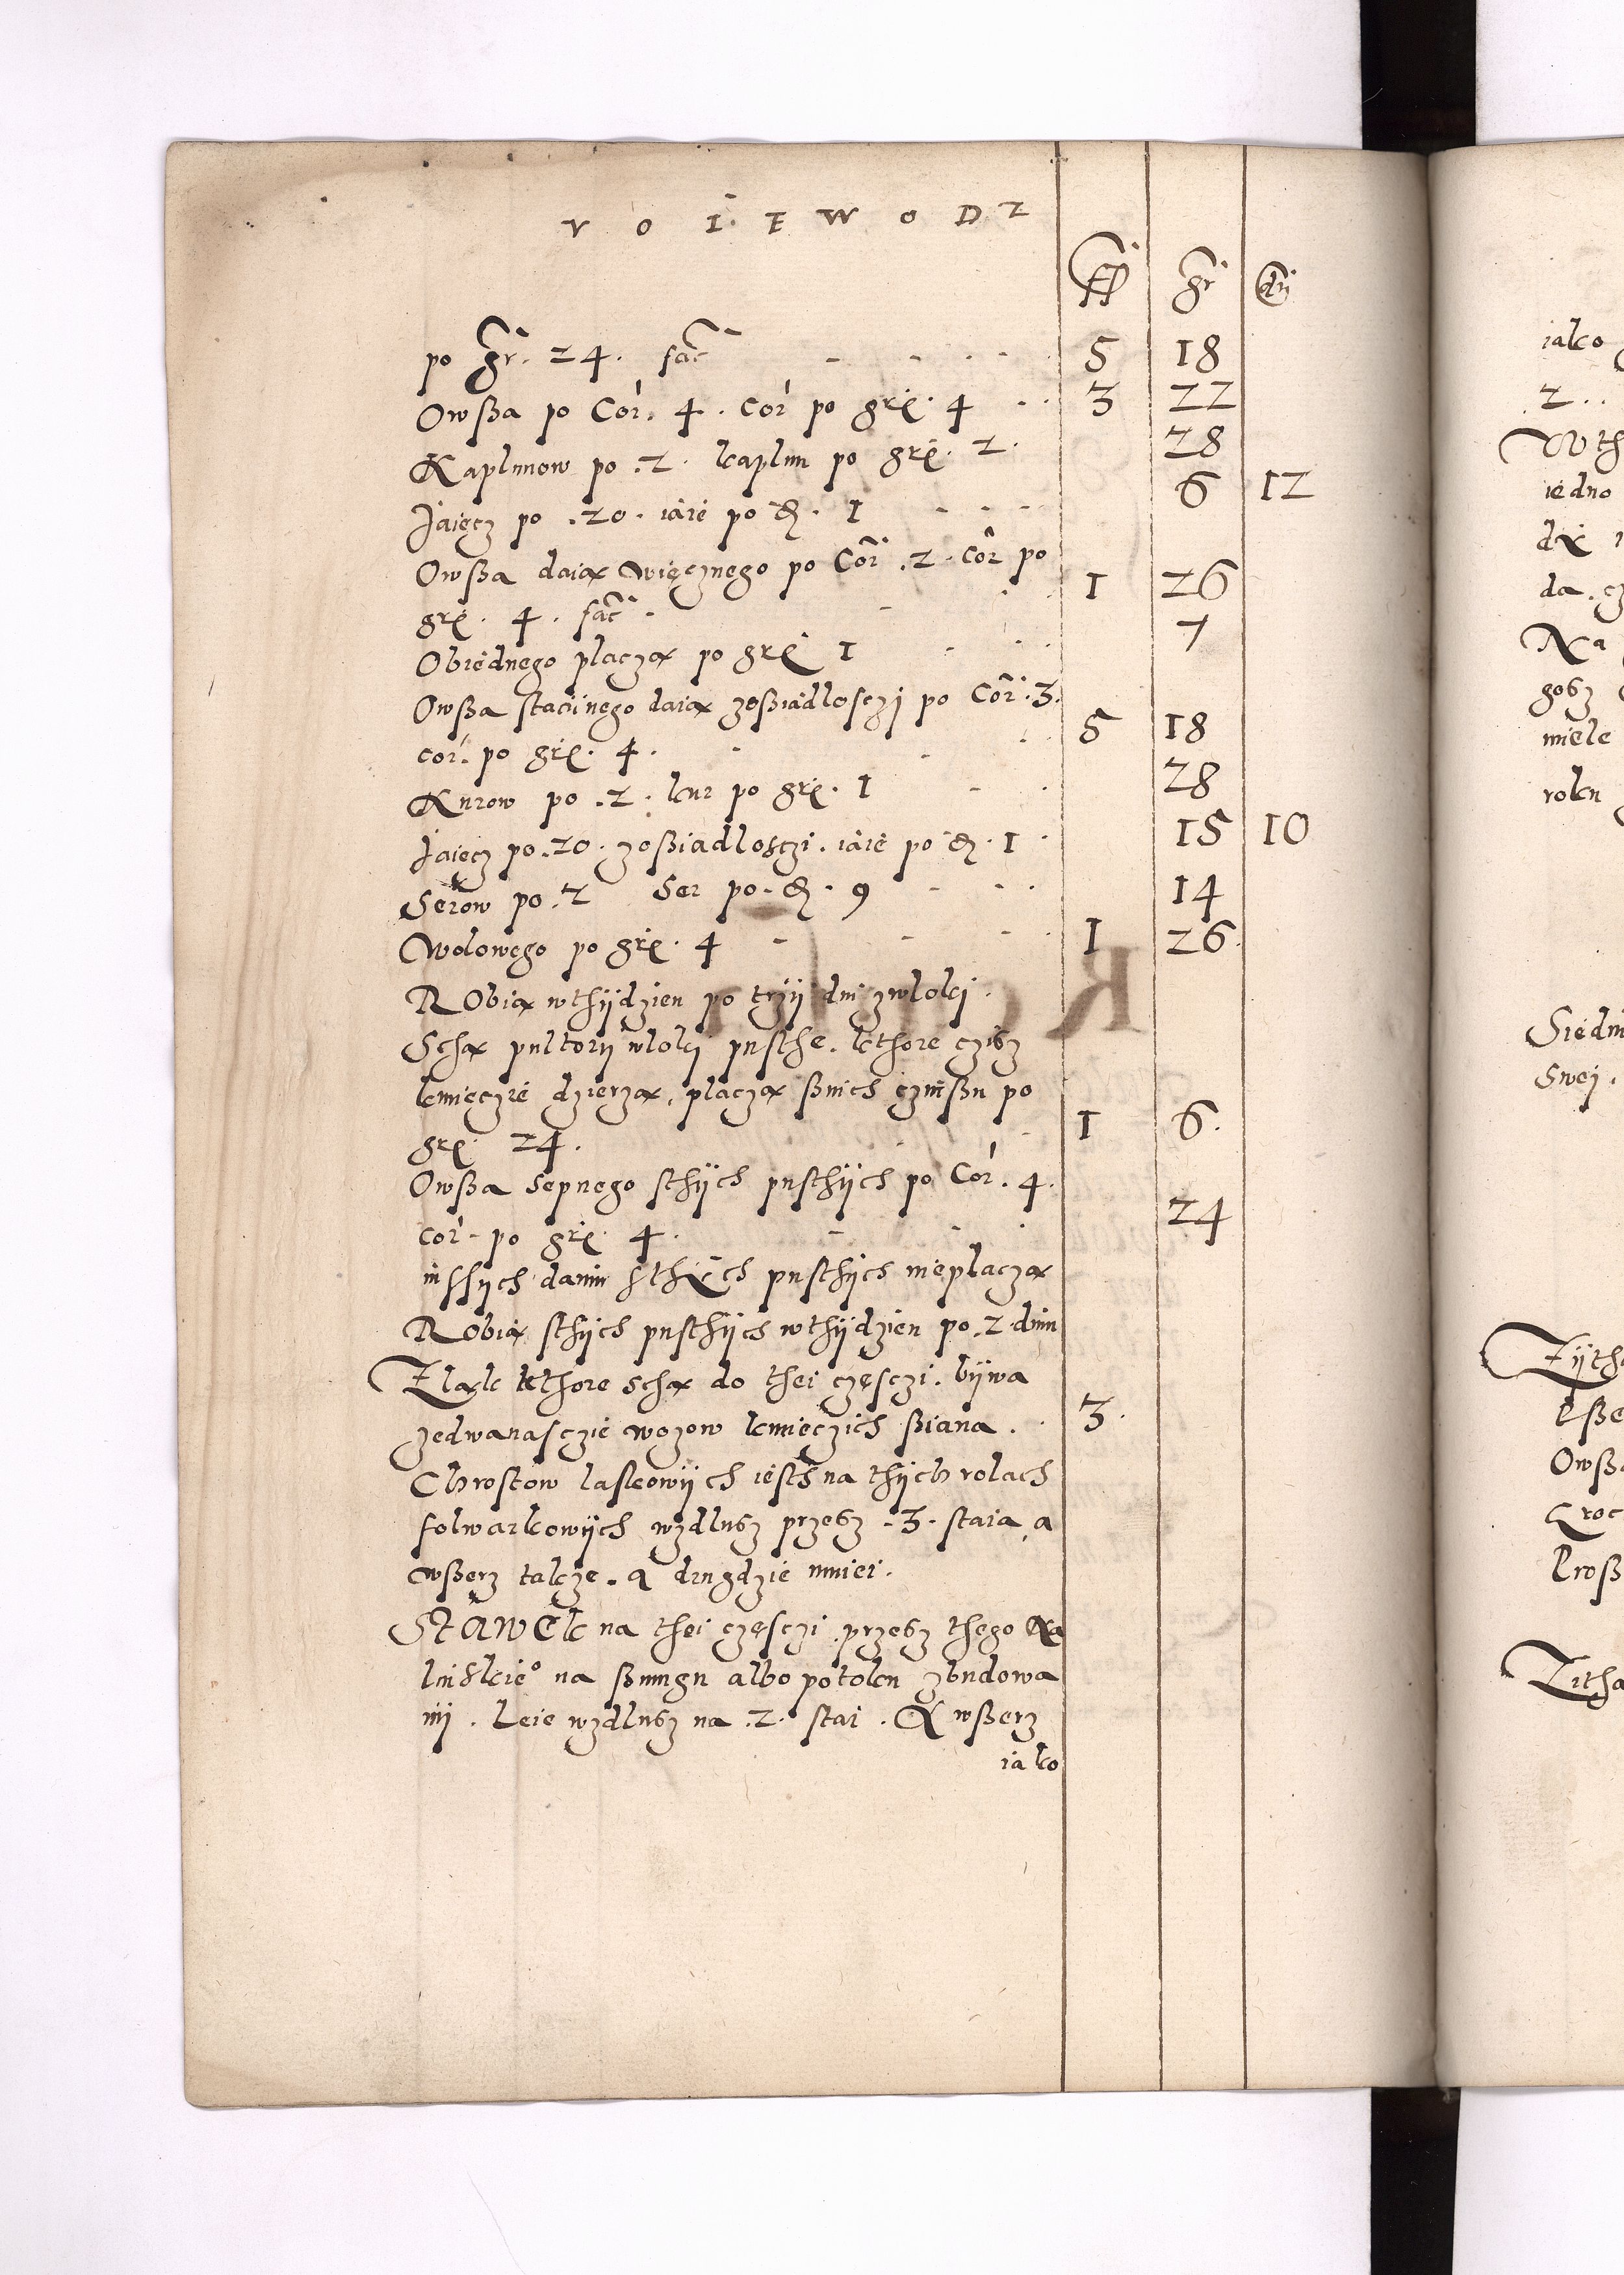 VOIEWODZ
fl gr dn
po gr. 24. fac 5 18
Owßa po Cor. 4. cor po grę. 4 3 22
Kaplunow po .2. kaplun po grę. 2. 28
Jaięcz po .20. iaie po d. 1 6 12
Owßa daią więcznego po Cor .2. cor po
grę. 4. fac 1 26
Obiednego płaczą po grę 1 7
Owßa staciinego daią zoßiadlosczj po Cor. 3.
cor. po grę. 4. 5 18
Kurow po .2. kur po grę. 1 28
Jaięcz po .20. zoßiadlosczi. iaie po d. 1 15 10
Serow po .2 Ser po. d. 9 14
Wolowego po grę. 4 1 26
RObią wthÿdzien po trzÿ dni zwlokj.
Schą pultorÿ wlokj pusthe. kthore czisz
kmieczie dzierzą, płaczą ßnich czinßu po
grę. 24. 1 6.
Owßa sepnego sthÿch pusthÿch po Cor. 4.
cor. po grę. 4. 24
inßÿch danin sthÿch pusthÿch nieplaczą
RObią sthÿch pusthÿch wthÿdzien po .2. dniu
Ląk kthore schą do thei częsczi. bÿwa
zedwanasczie wozow kmieczich ßiana. 3.
Chrostow laskowÿch iesth na thÿch rolach
folwarkowÿch wzdlusz przesz .3. staia a
wßerz takze. a drugdzie mniei.
STAWEk na thei częsczi przesz thego Ka
linskie° na ßnugu albo potoku zbudowa
nÿ. Leie wzdlusz na .2. stai. A wßerz
iako
iako
2..
Wth
iedno
da. cz
Na
gosz
miele
rolcu
Siedm
Swej.
Zÿth
kße
Owß
Croc
Proß
Zitha